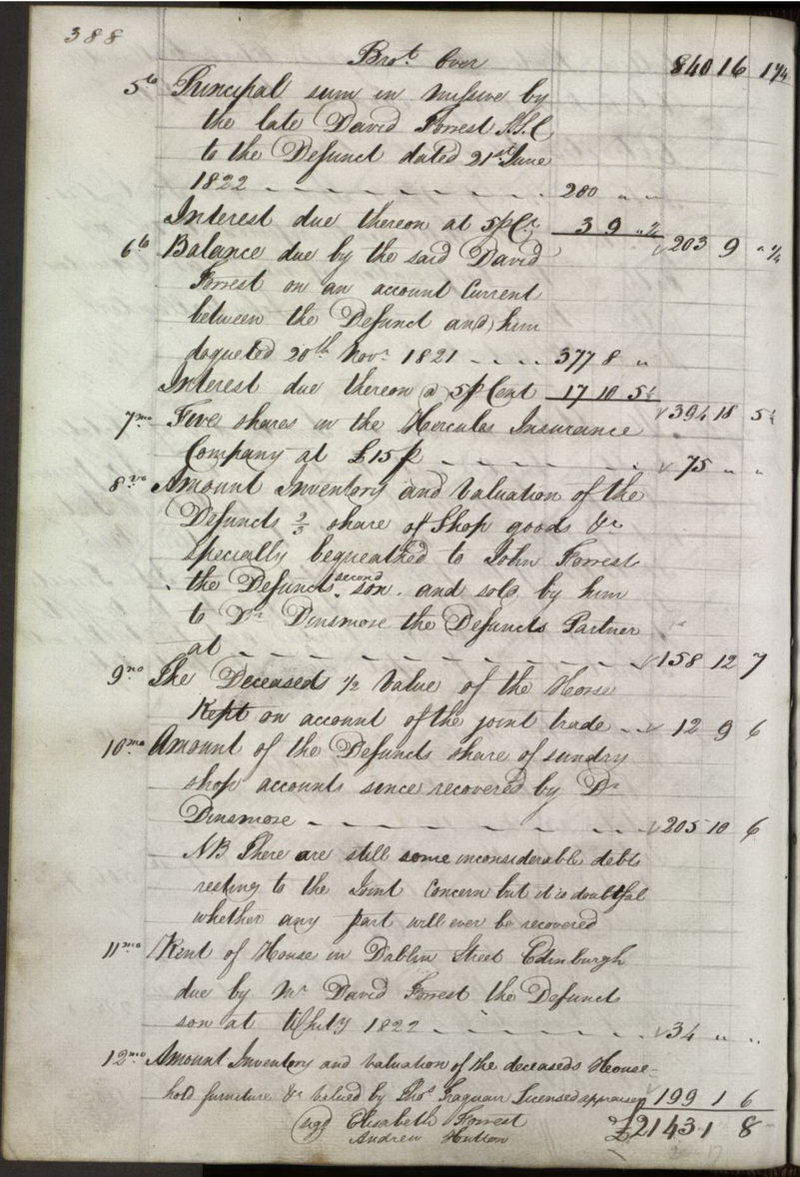 388
Bro.t Over 840 16 1 1/4
5to Principal sum in missive by
the late David Forrest S.S.C
to the Defunct dated 21st June
1822 200 " "
Interest due thereon at 5 p Ct 3 9 " 1/4 203 9 " 1/4
6to Balance due by the said David
Forrest on an account Current
between the Defunct and him
doqueted 20th Novr. 1821 377 8 "
Interest due thereon @ 5 p Cent 17 10 5 1/2 394 18 5 1/2
7mo Five shares in the Hercules Insurance
Company at £15 p 75 " "
8vo Amount Inventory and Valuation of the
Defuncts 2/3 share of Shop goods &c
specially bequeathed to John Forrest
the Defuncts second son and sold by him
to Dr Dinsmore the Defuncts Partner
at 158 12 7
9no The Deceased 1/2 Value of the Horse
Kept on account of the joint trade 12 9 6
10mo Amount of the Defuncts share of sundry
shop accounts since recovered by Dr
Dinsmore 205 10 6
NB There are still some inconsiderable debts
resting to the Joint Concern but it is doubtful
whether any part will ever be recovered
11mo Rent of House in Dublin Street Edinburgh
due by Mr David Forrest the Defuncts
son at Whity 1822 34 " "
12mo Amount Inventory and Valuation of the deceaseds House=
hold furniture &c Valued by Thos Traquair Licensed appraiser 199 1 6
(sigd Elisabeth Forrest £2143 1 8
Andrew Hutton